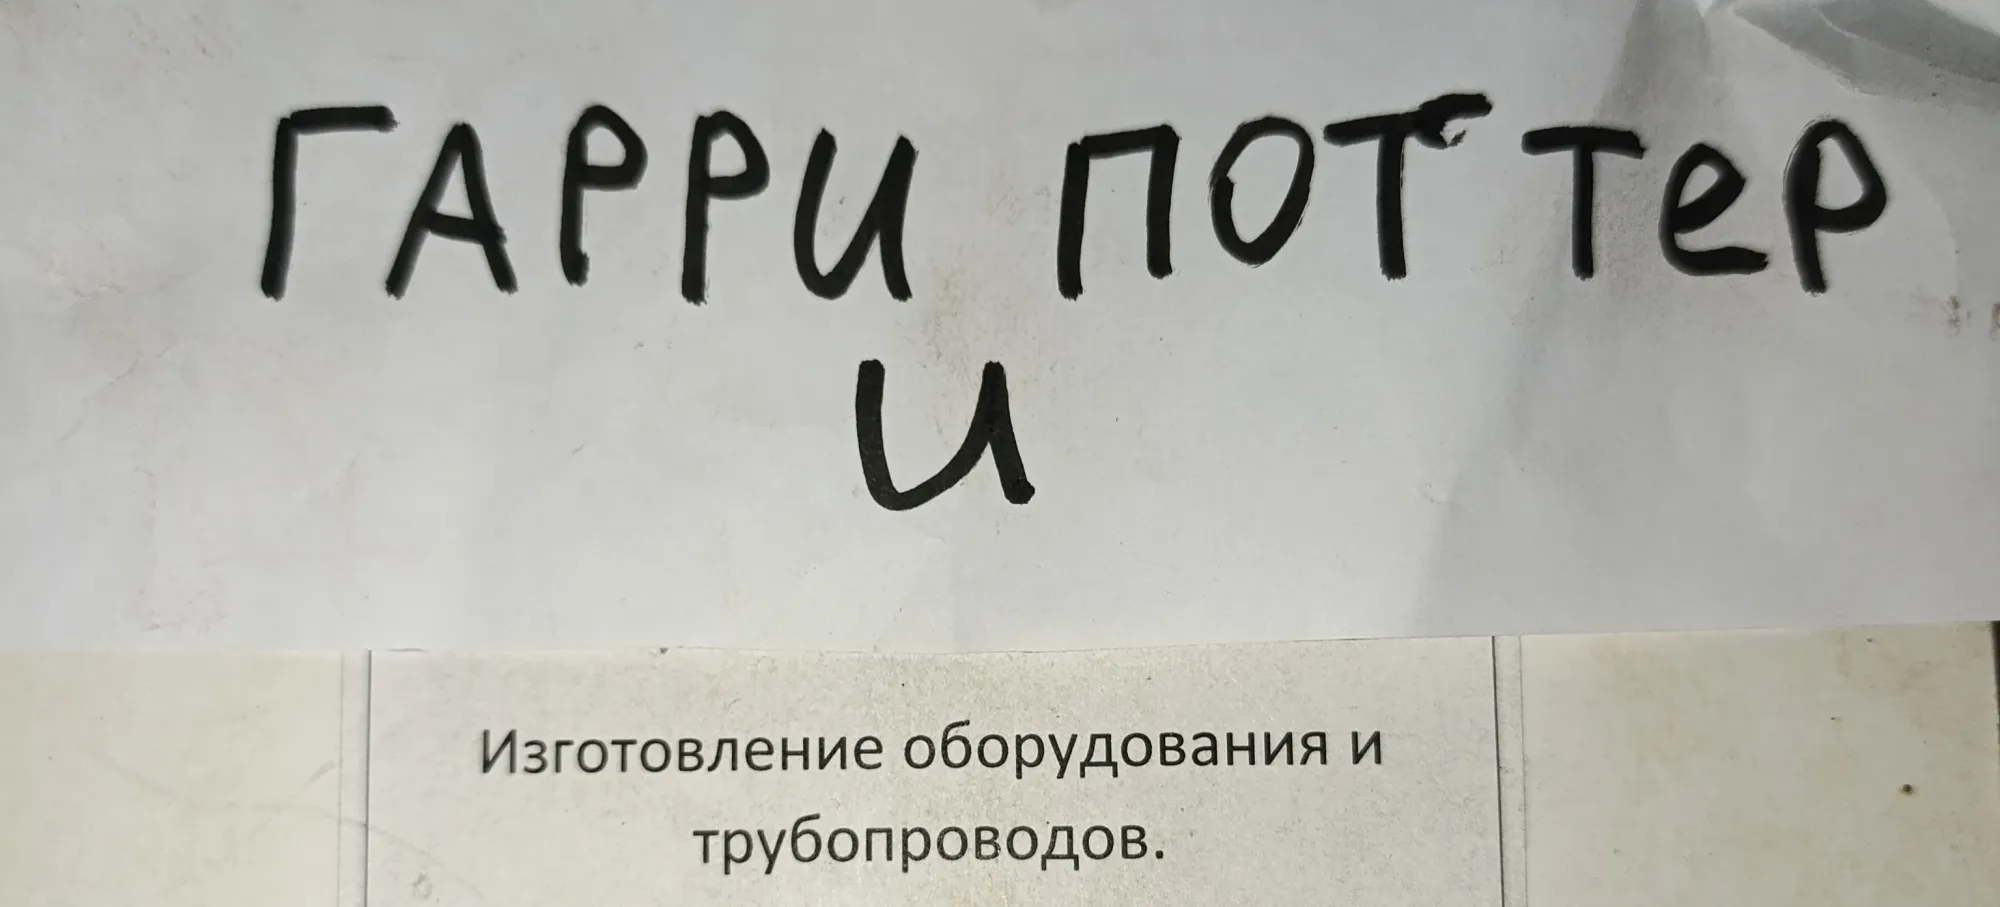 ГАРРИ ПОТТеР
И
Изготовление оборудования и
трубопроводов.